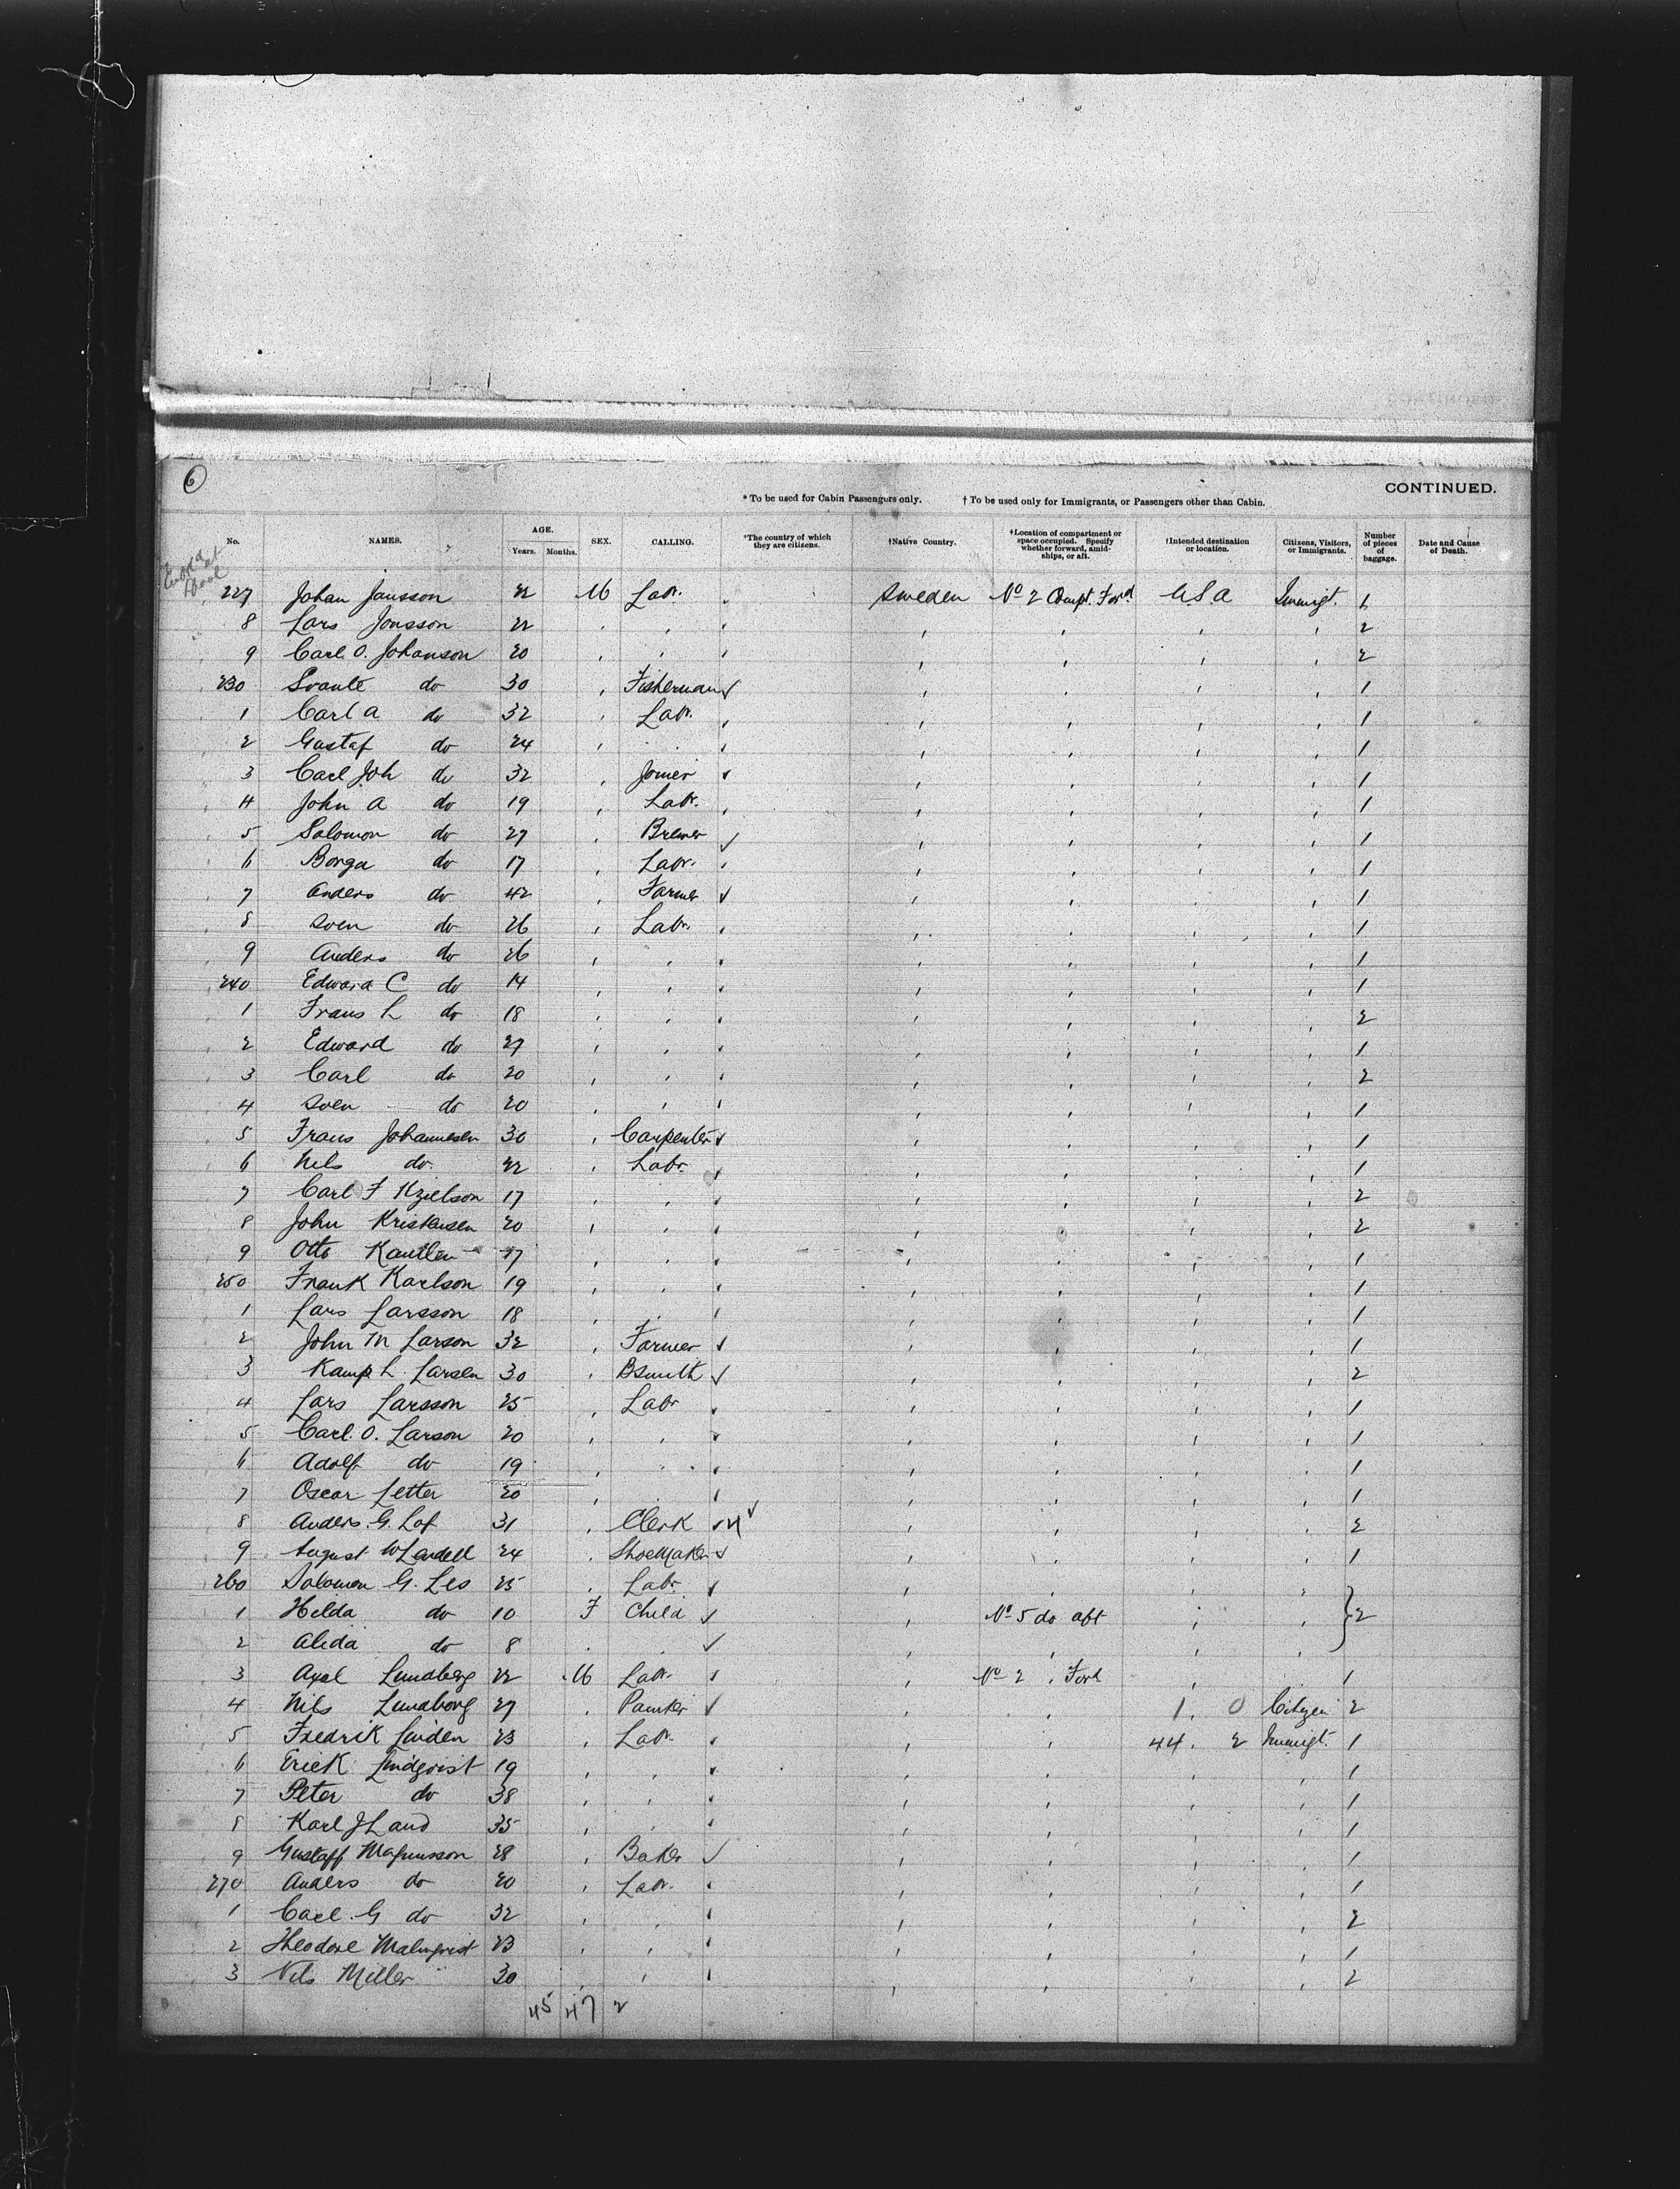 6
CONTINUED.
* To be used for Cabin Passengers only. † To be used only for Immigrants, or Passengers other than Cabin.
No. NAMES. AGE. Years. Months. SEX. CALLING. *The country of which they are citizens. †Native Country. †Location of compartment or space occupied. Specify whether forward, amid-ships, or aft. †Intended destination or location. Citizens, Visitors, or Immigrants. Number of pieces of baggage. Date and Cause of Death.
227 Johan Jansson 22 M Labr. Sweden No 2 Compt. Ford. U.S.A Immigt. 1
8 Lars Jonsson 22 2
9 Carl O. Johanson 20 2
230 Svante do 30 Fisherman 1
1 Carl A do 32 Labr. 1
2 Gustaf do 24 1
3 Carl Joh do 32 Joiner 1
4 John A do 19 Labr. 1
5 Salomon do 27 Brewer 1
6 Borga do 17 Labr. 1
7 Anders do 42 Farmer 1
8 Sven do 26 Labr. 1
9 Anders do 26 1
240 Edward C do 14 1
1 Frans L do 18 2
2 Edward do 27 1
3 Carl do 20 2
4 Sven do 20 1
5 Frans Johannesen 30 Carpenter 1
6 Nils do 22 Labr. 1
7 Carl F Kjelson 17 2
8 John Kristensen 20 2
9 Otto 17 1
250 Frank Karlson 19 1
1 Lars Larsson 18 1
2 John M Larson 32 Farmer 1
3 Kamp L. Larsen 30 Bsmith 2
4 Lars Larsson 25 Labr 1
5 Carl. O. Larson 20 1
6 Adolf do 19 1
7 Oscar Letter 20 1
8 Anders. G. Lof 31 Clerk 2
9 August W Lendell 24 Shoemaker 1
260 Salomon G. Les 25 Labr.
1 Hilda do 10 F Child No 5 do aft 2
2 Alida do 8
3 Axel Lundberg 22 M Labr. No 2 Ford 1
4 Nils Lundborg 27 Painter 1 0 Citizen 2
5 Fredrik Linden 23 Labr. 44 2 Immigt. 1
6 Erick Lindqvist 19 1
7 Peter do 38 1
8 Karl J Land 35 1
9 Gustaff Magnusson 28 Baker 1
270 Anders do 20 Labr. 1
1 Carl. G do 32 2
2 Theodore Malmqvist 23 1
3 Nils Miller 30 2
45 47 2